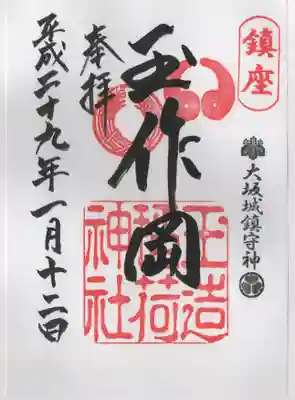 鎮座
大坂城鎮守神
玉作岡
奉拝
平成二十九年一月十二日
玉造
稲荷
神社